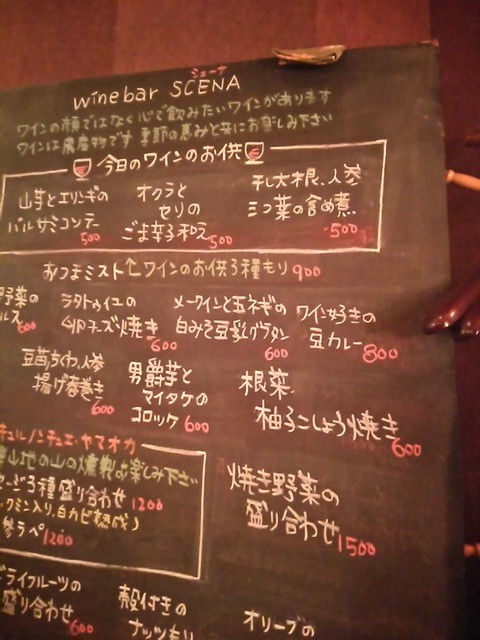 シェーナ
winebar SCENA
ワインの顔ではなく心で飲みたいワインがあります
ワインは農産物です 季節の恵みと共にお楽しみ下さい
今日のワインのお供
山芋とエリンギの
バルサミコソテー
500
オクラと
セリの
ごま辛子和え 500
干し大根、人参
三つ葉の含め煮
500
おつまミスト ↑ワインのお供3種もり 900
野菜の
ルス 600
ラタトゥイユの
卵チーズ焼き
600
メークインと玉ネギの
白みそ豆乳グラタン
600
ワイン好きの
豆カレー 800
豆苗、ちくわ、人参
揚げ春巻き
600
男爵芋と
マイタケの
コロッケ 600
根菜
柚子こしょう焼き
600
チュルノンチュエ・ヤマオカ
山地の山の燻製お楽しみ下さい
セージ3種盛り合わせ 1200
クミン入り、白カビ熟成)
参ラペ 1200
焼き野菜の
盛り合わせ
1500
ドライフルーツの
盛り合わせ
600
殻付きの
ナッツもり
オリーブの